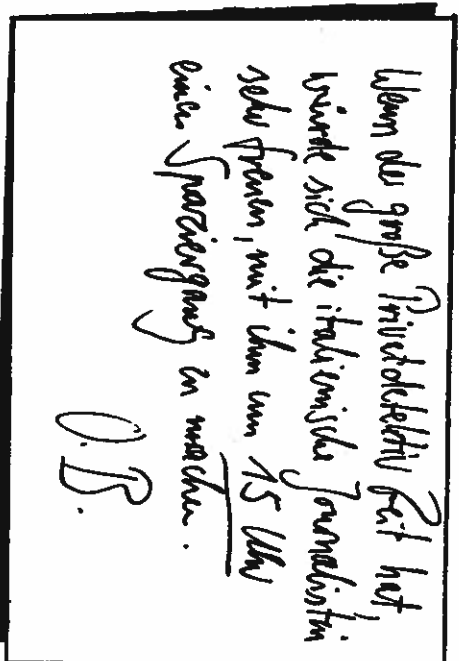 Wenn der große Privatdetektiv Zeit hat,
würde sich die italienische Journalistin
sehr freuen, mit ihm um 15 Uhr
einen Spaziergang zu machen.
O.B.